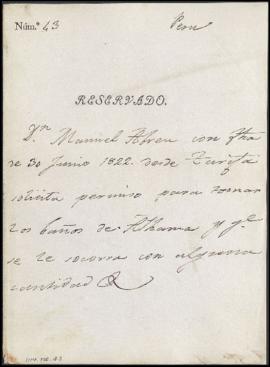 Núm.º 43
Peru
RESERVADO.
Dⁿ Manuel Abreu con fha
de 30 Junio 1822. desde Tarifa
solicita permiso para tomar
los baños de Alhama y qᵉ
se le socorra con alguna
cantidad